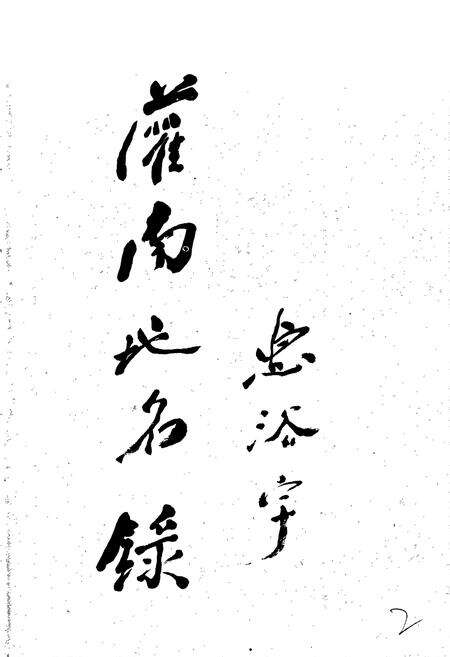 灌南地名錄
惠浴宇
2